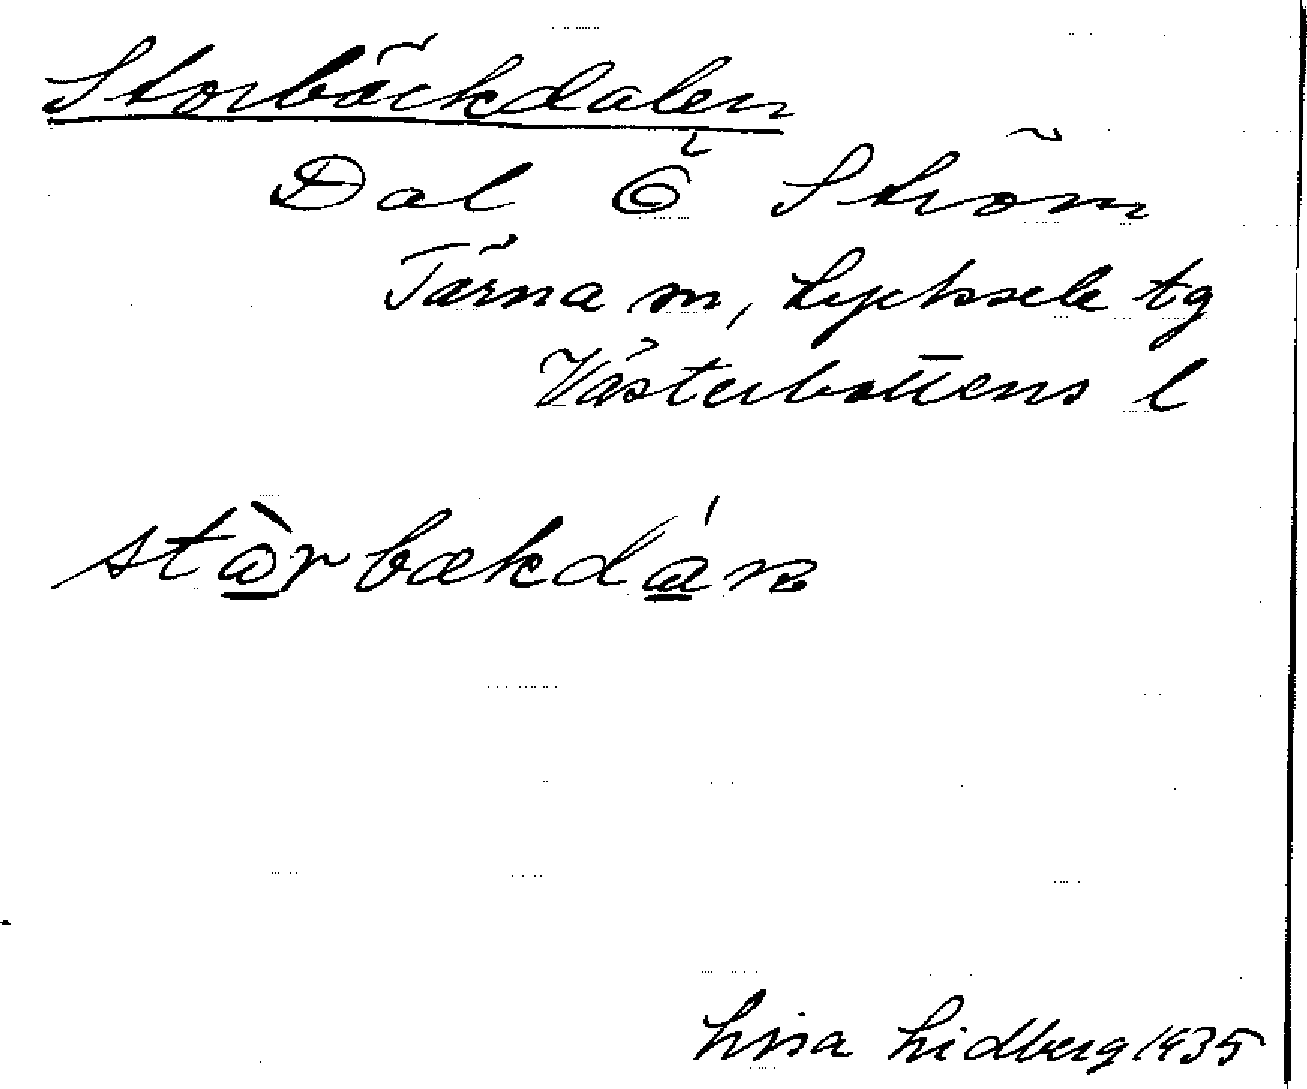 Storbäckdalen
Dal Ö Ström
Tärna sn, Lycksele tg
Västerbottens l
stàrbækdán
Lisa Lidberg 1935